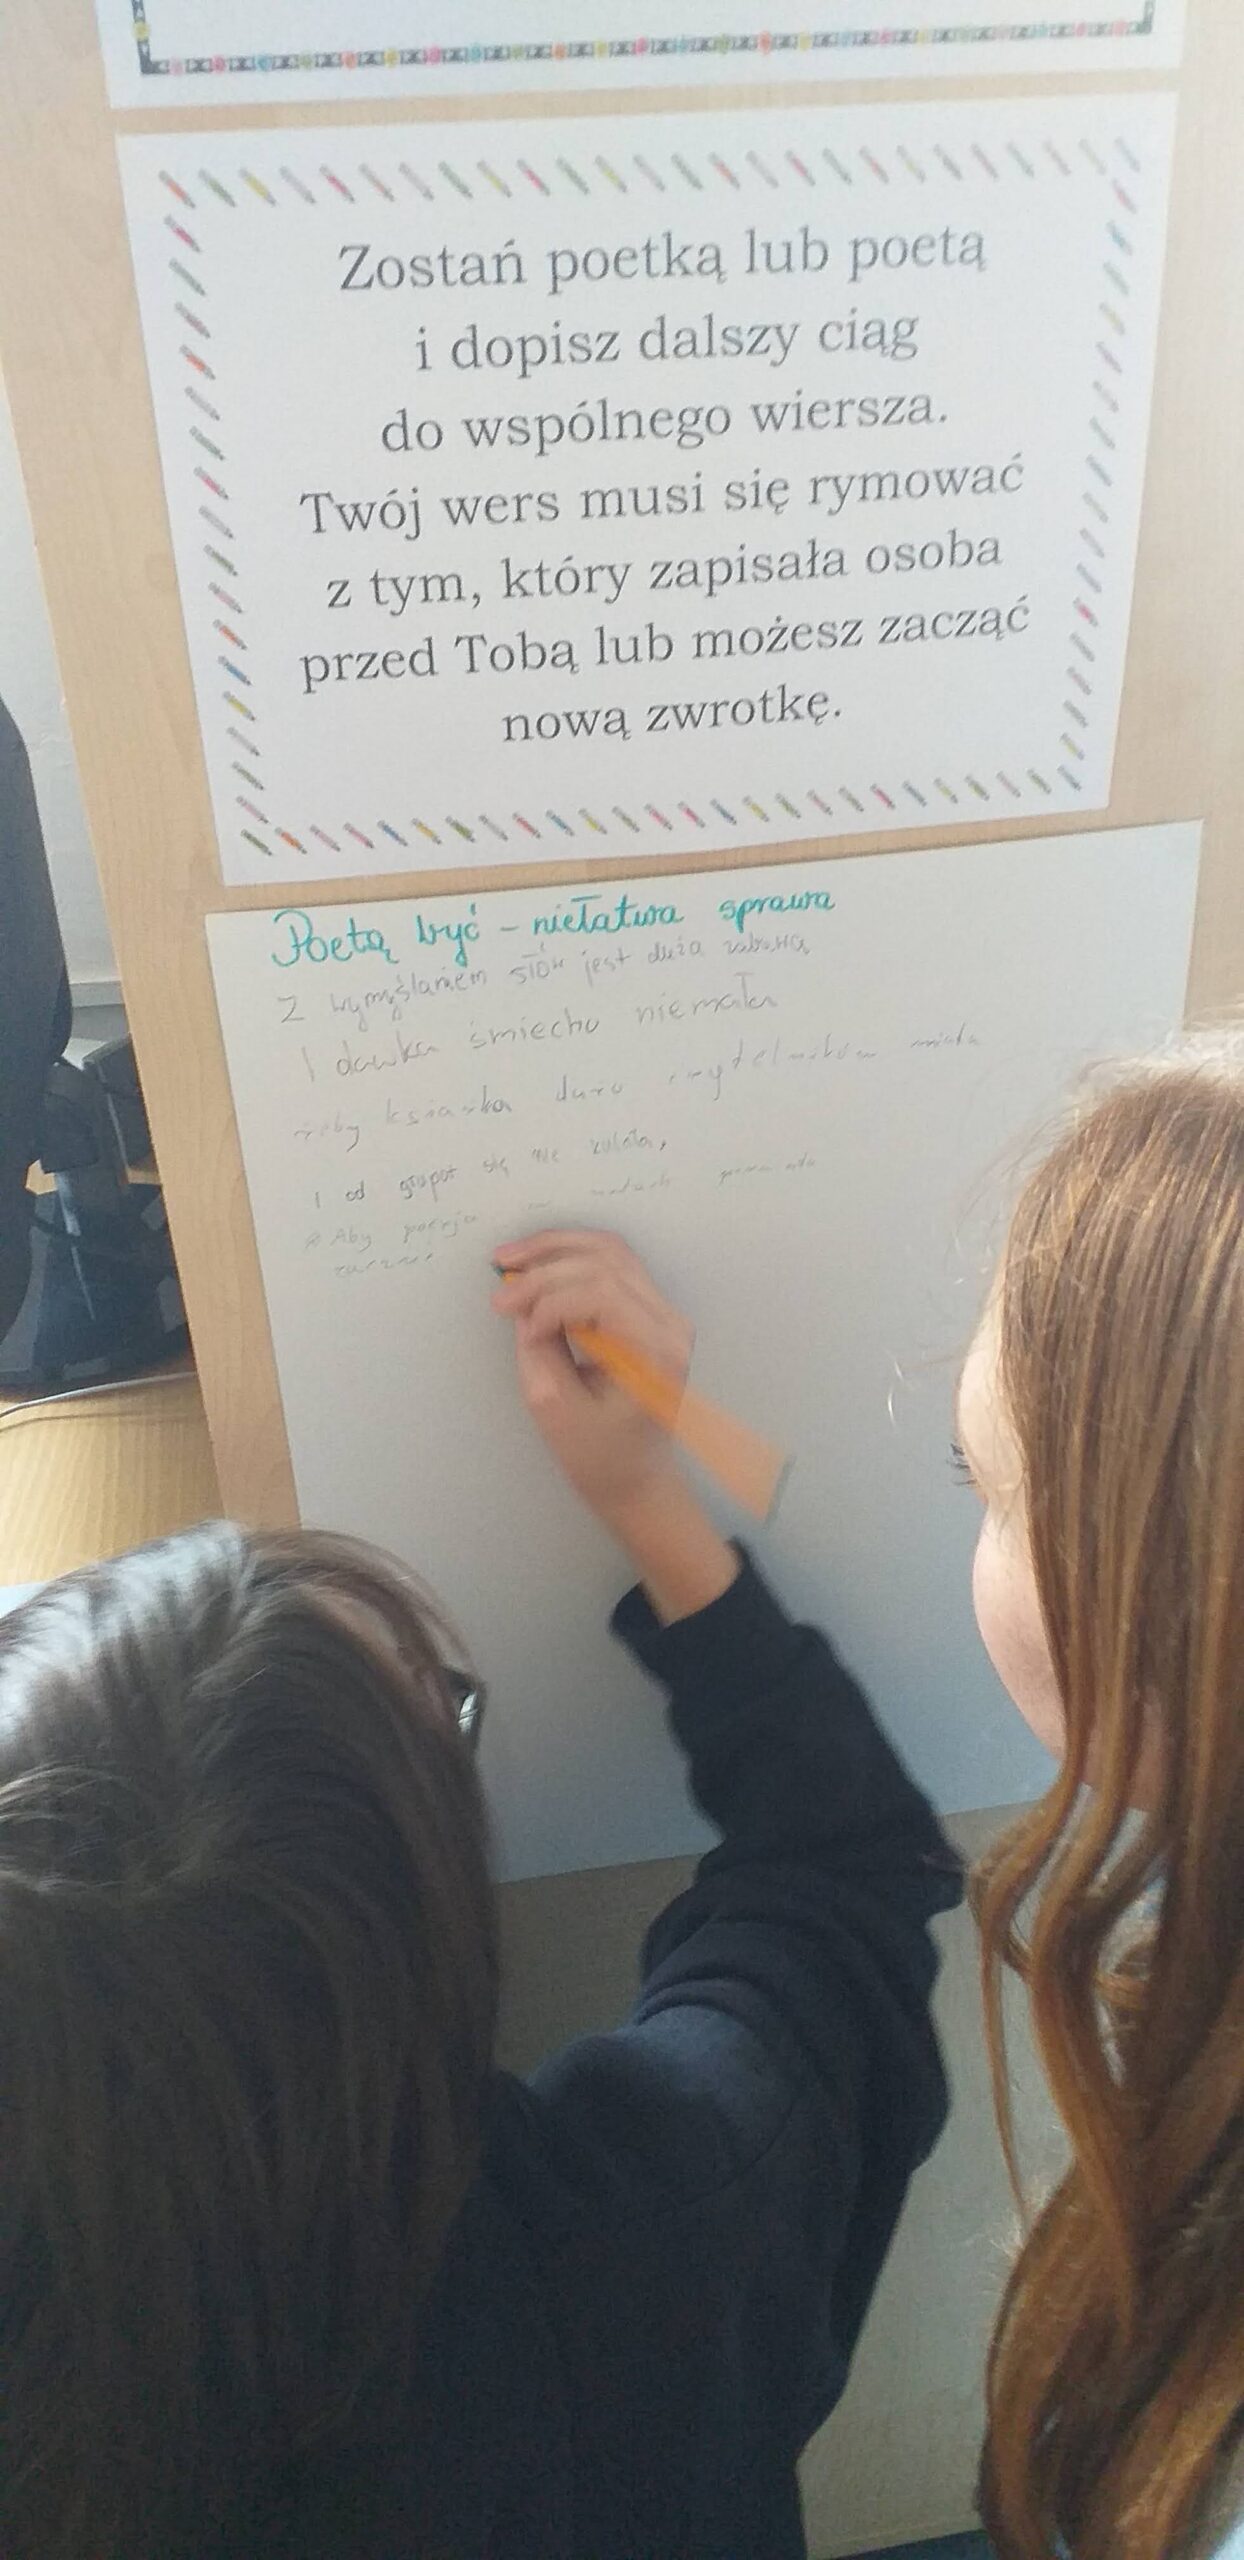 Zostań poetką lub poetą
i dopisz dalszy ciąg
do wspólnego wiersza.
Twój wers musi się rymować
z tym, który zapisała osoba
przed Tobą lub możesz zacząć
nową zwrotkę.
Poetą być – niełatwa sprawa
Z wymyślaniem słów jest duża zabawa
I dawka śmiechu niemała
żeby książka dużo czytelników miała
I od głupot się nie
Aby poezja